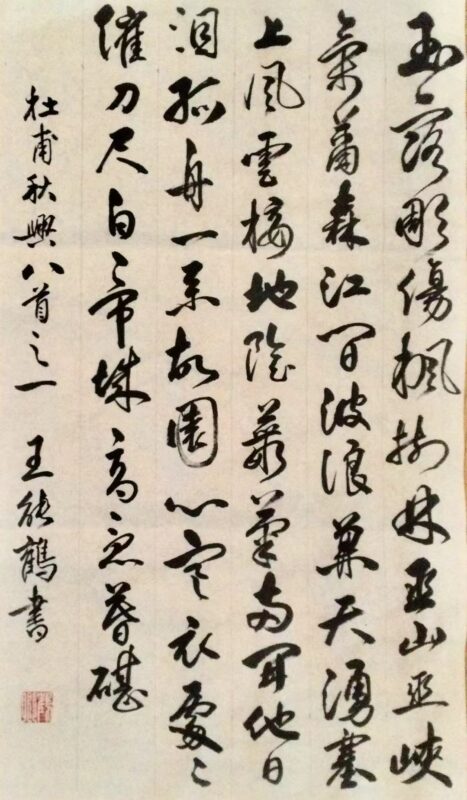 玉露彫傷楓樹林巫山巫峽
氣蕭森江間波浪兼天湧塞
上風雲接地陰叢菊兩開他日
泪孤舟一系故園心寒衣處〻
催刀尺白帝城高急暮碪
杜甫秋興八首之一 王能鶴書